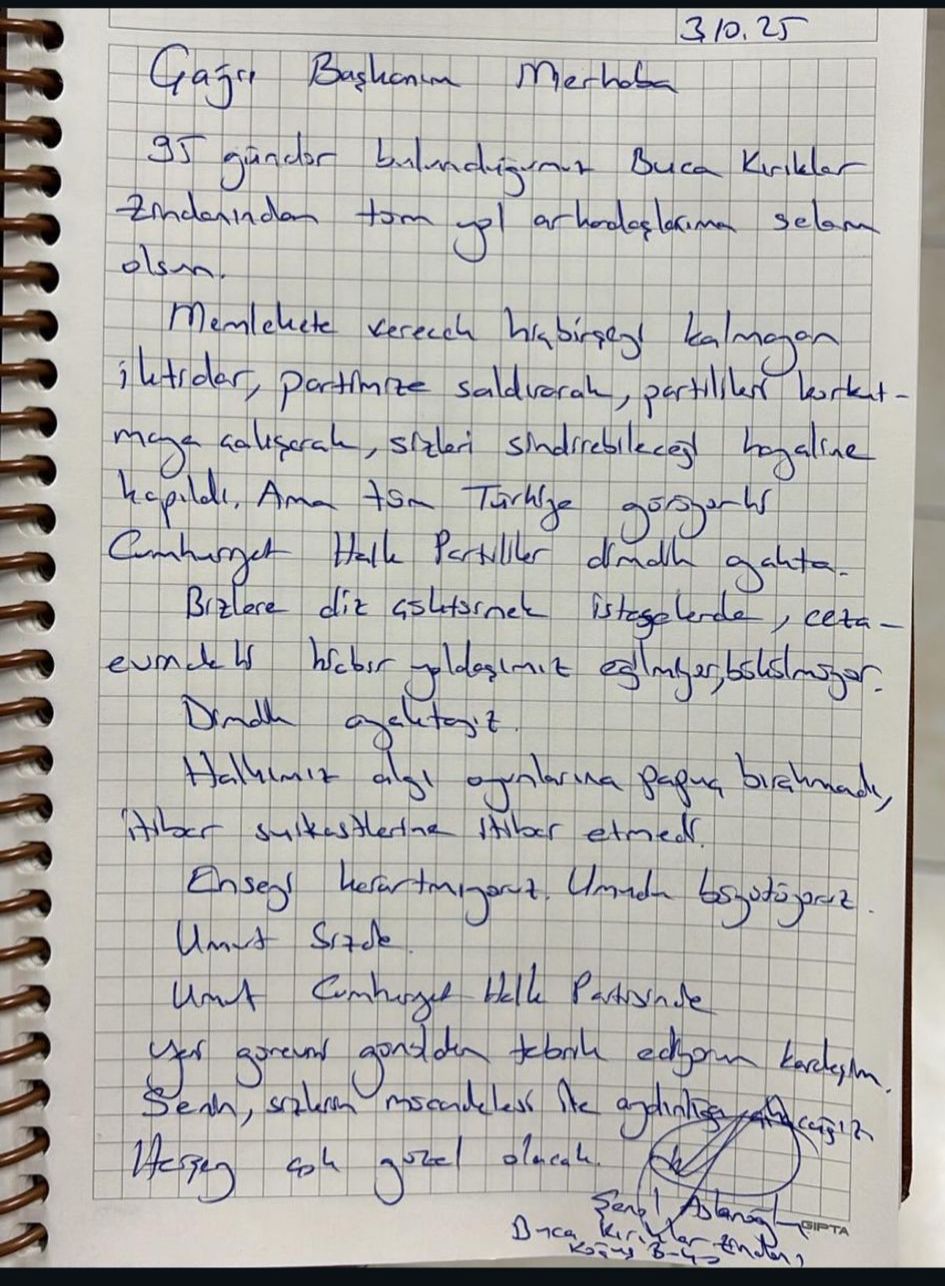 3.10.25
Çağrı Başkanım Merhaba
95 gündür bulunduğumuz Buca Kırıklar
Zindanından tüm yol arkadaşlarıma selam
olsun.
Memlekete verecek hiçbirşeyi kalmayan
iktidar, partimize saldırarak, partilileri korkut-
maya çalışarak, sizleri sindirebileceği hayaline
kapıldı. Ama tüm Türkiye görüyorki
Cumhuriyet Halk Partililer dimdik ayakta.
Bizlere diz çöktürmek isteselerde, ceza-
evindeki hiçbir yoldaşımız eğilmiyor, bükülmüyor.
Dimdik ayaktayız.
Halkımız algı oyunlarına papuç bırakmadı,
itibar suikastlerine itibar etmedi.
Enseyi karartmıyoruz. Umudu büyütüyoruz.
Umut Sizde.
Umut Cumhuriyet Halk Partisinde
Yeni görevini gönülden tebrik ediyorum kardeşim.
Senin, sizlerin mücadelesi ile aydınlığa çıkacağız.
Herşey çok güzel olacak.
Şenol Aslanoğlu
Buca Kırıklar Zindanı
Koğuş B-
GIPTA